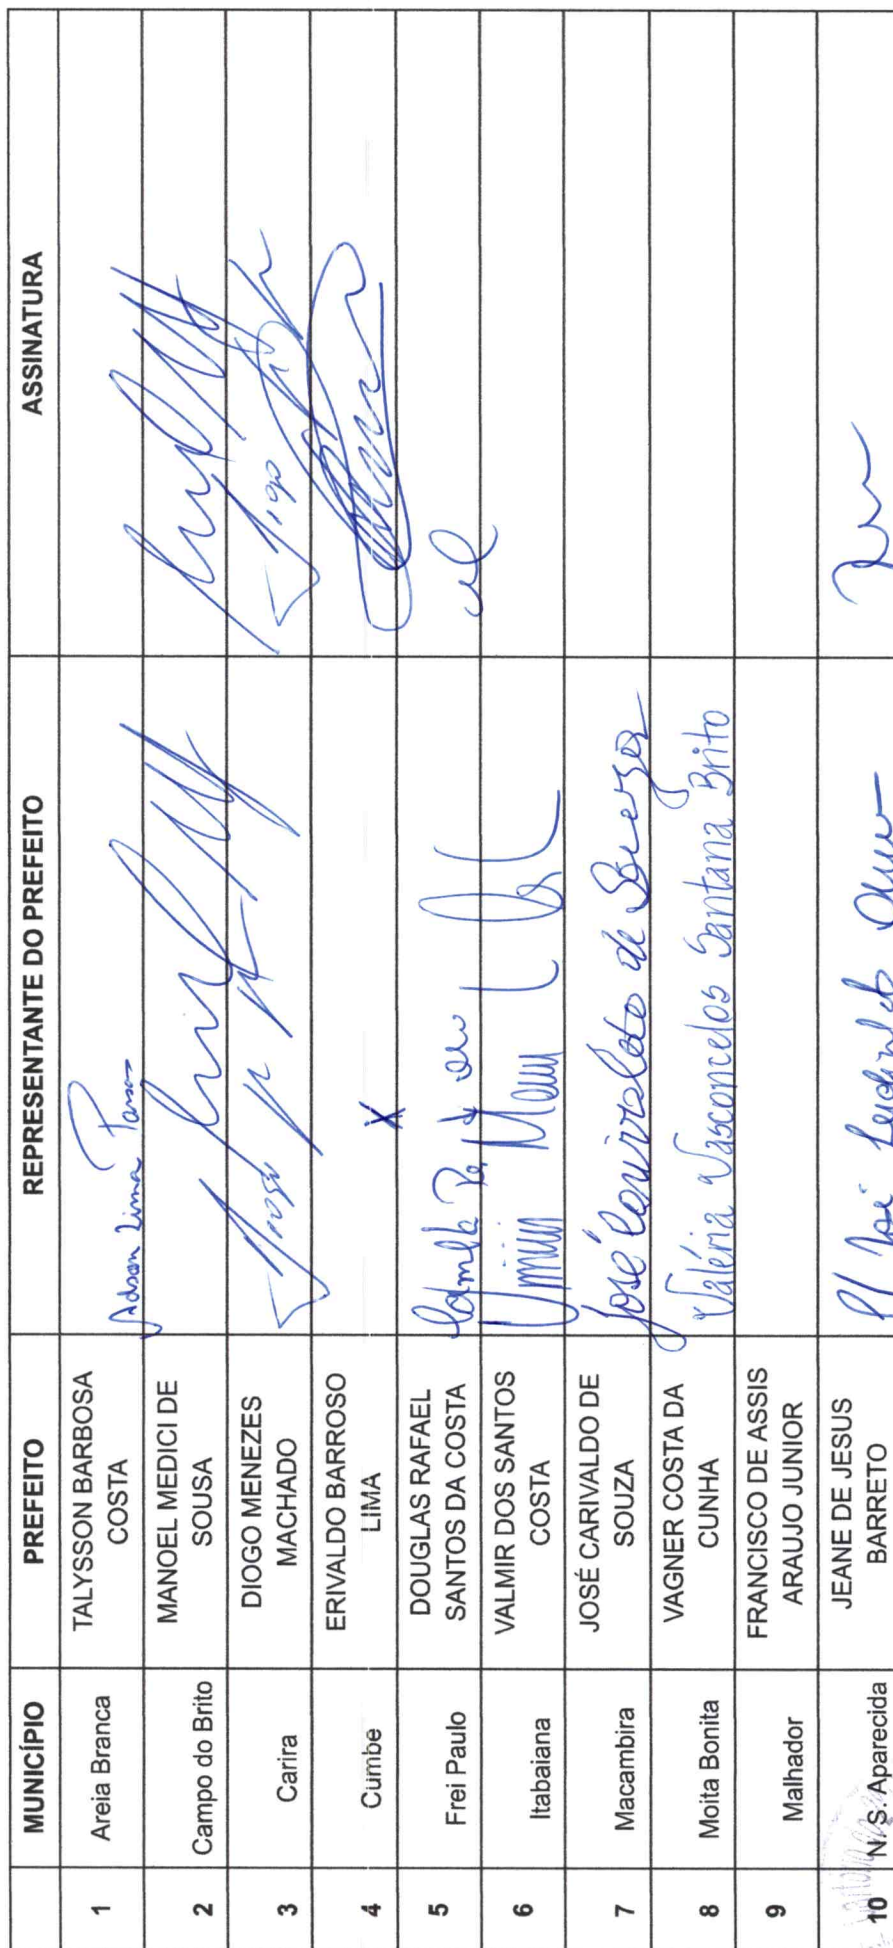 MUNICÍPIO PREFEITO REPRESENTANTE DO PREFEITO ASSINATURA
1 Areia Branca TALYSSON BARBOSA COSTA Adson Lima
2 Campo do Brito MANOEL MEDICI DE SOUSA
3 Carira DIOGO MENEZES MACHADO
4 Cumbe ERIVALDO BARROSO LIMA X
5 Frei Paulo DOUGLAS RAFAEL SANTOS DA COSTA
6 Itabaiana VALMIR DOS SANTOS COSTA
7 Macambira JOSÉ CARIVALDO DE SOUZA José Carivaldo de Souza
8 Moita Bonita VAGNER COSTA DA CUNHA Valéria Vasconcelos Santana Brito
9 Malhador FRANCISCO DE ASSIS ARAUJO JUNIOR
10 N. S. Aparecida JEANE DE JESUS BARRETO P/